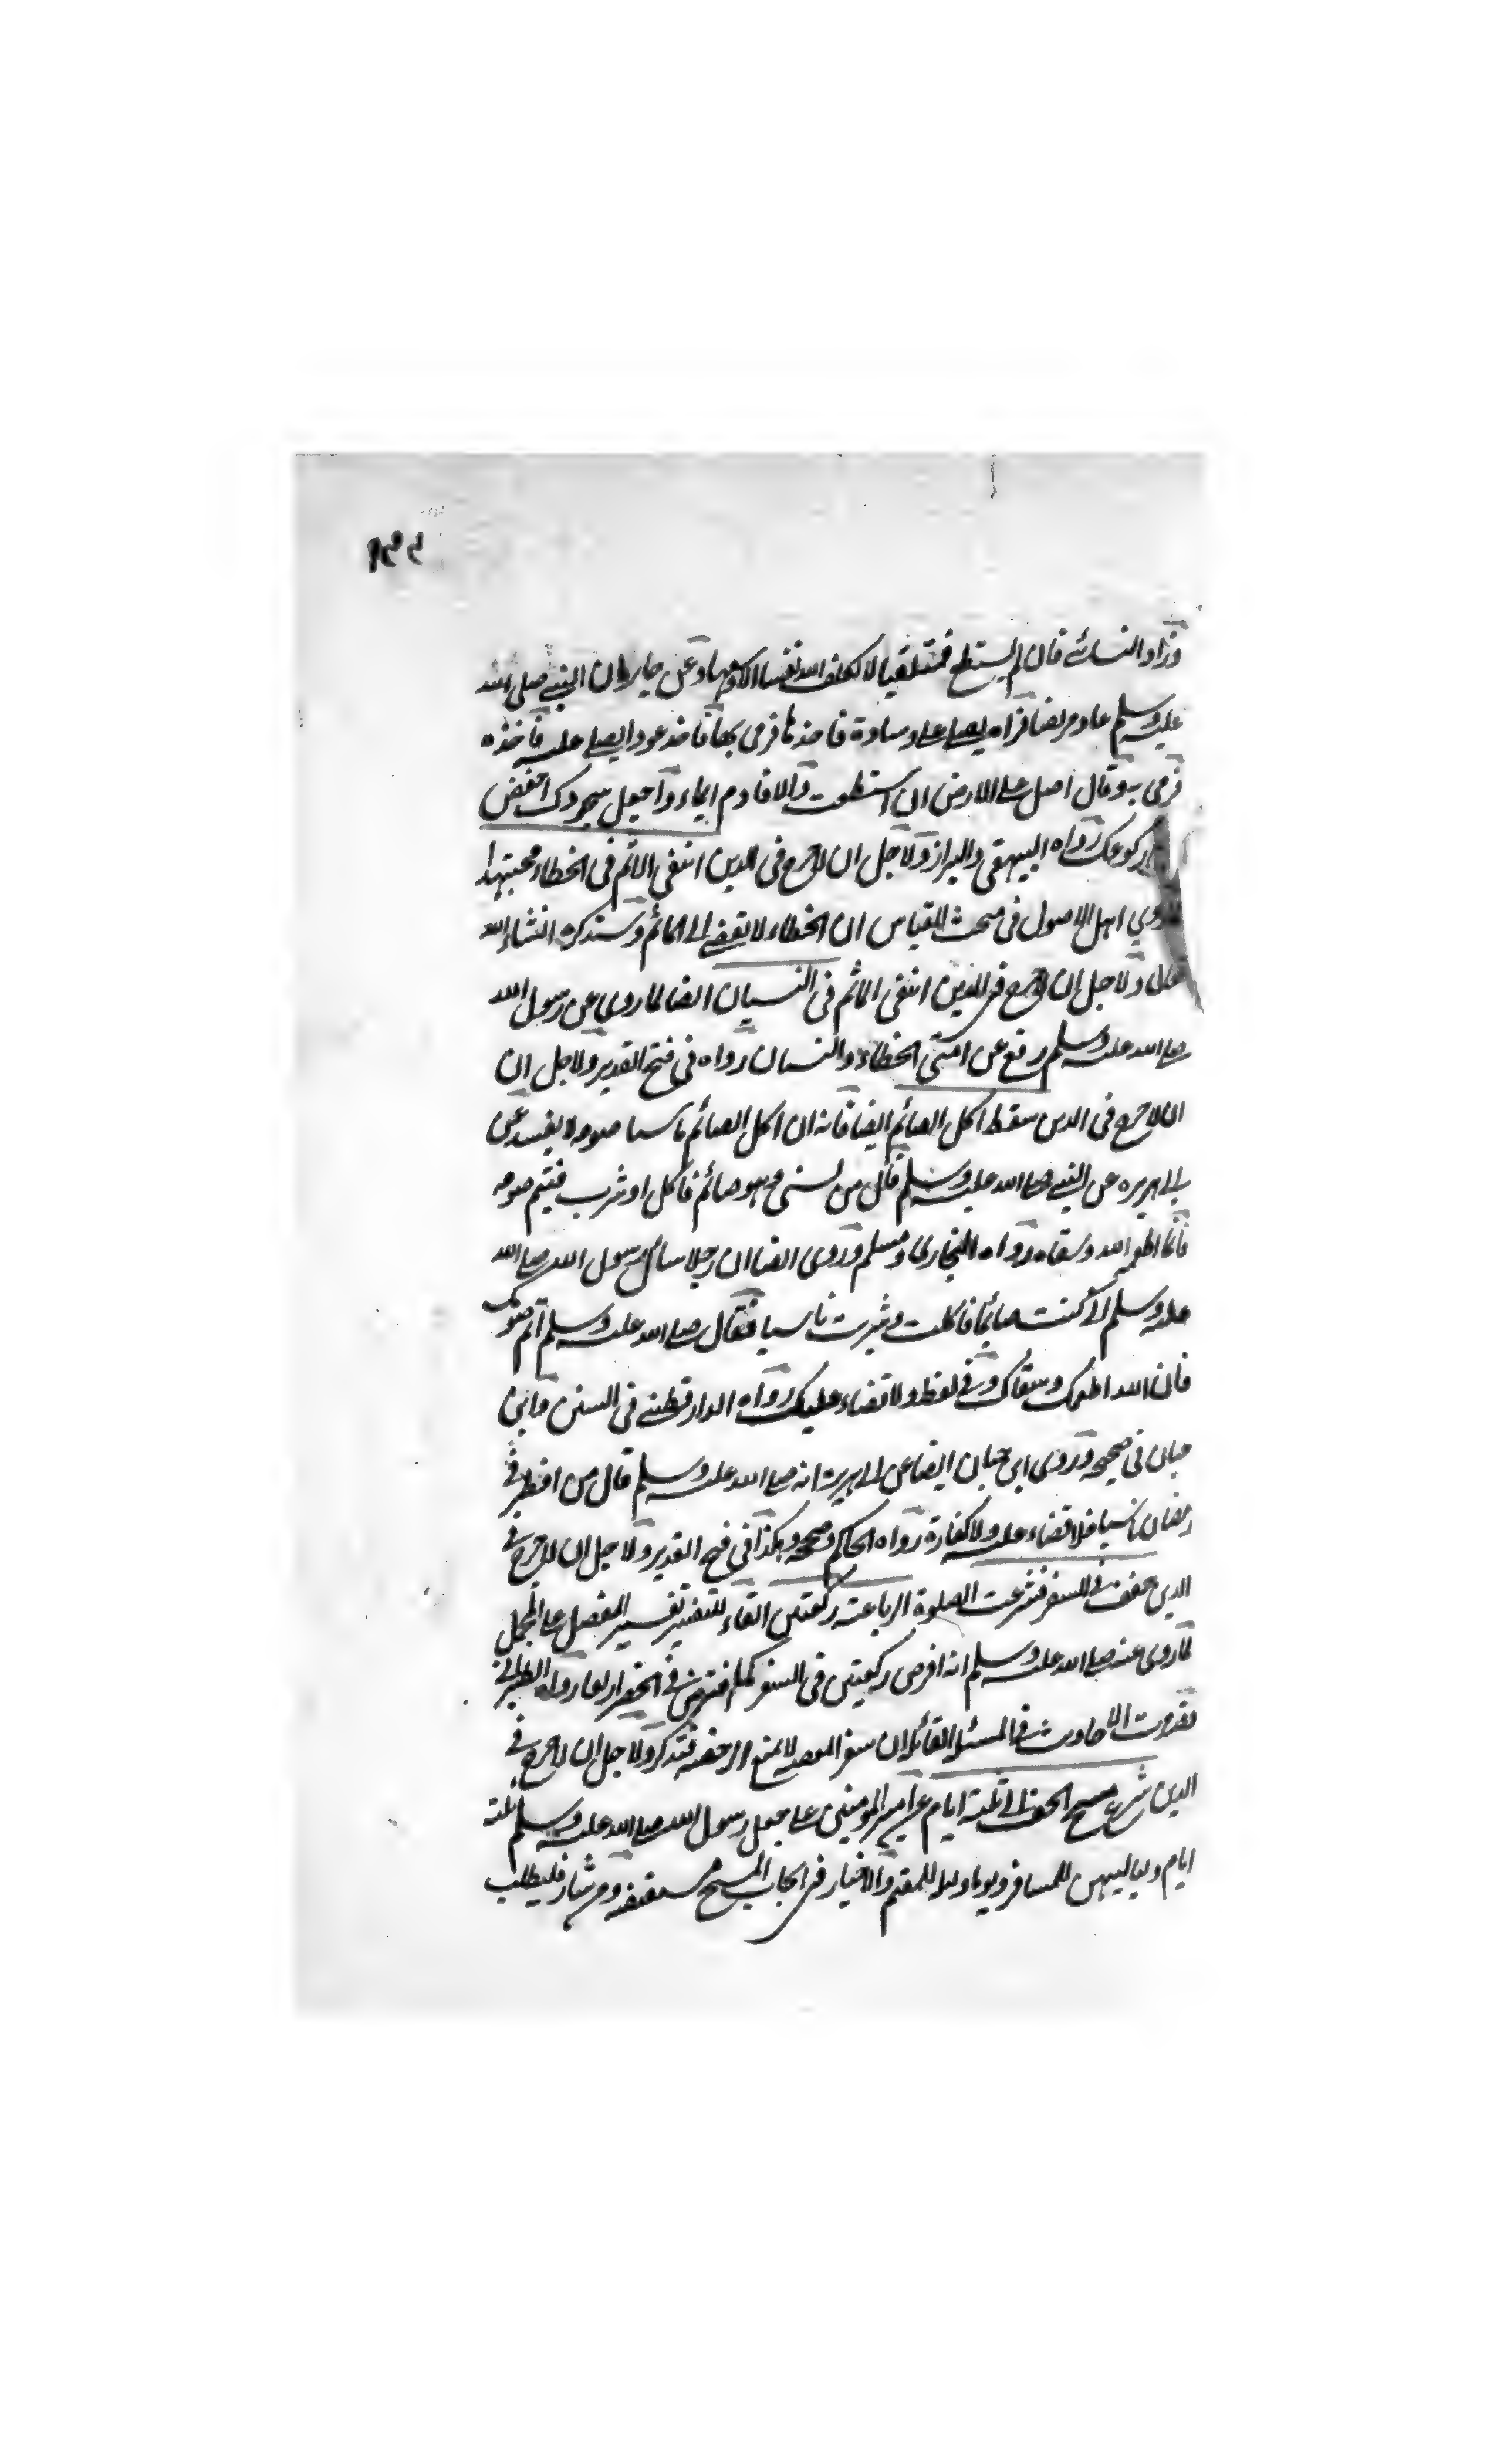 وزاد النسائي فان لم يستطع فمستلقيا لا يكلف الله نفسا الا وسعها وعن جابر ان النبي صلى الله
عليه وسلم عاد مريضا فراه يصلي على وسادة فاخذها فرمى بها فاخذ عودا ليصلي عليه فاخذه
فرمى به وقال صل على الارض ان استطعت والا فاوم ايماء واجعل سجودك اخفض
ركوعك رواه البيهقي والبزاز ولاجل ان لا حرج في الدين انتفى الاثم في الخطاء مجتهدا
روي اهل الاصول في مبحث القياس ان الخطاء لا يفضي الى المأثم وستذكره انشاء الله
تعالى ولاجل ان لا حرج في الدين انتفى الماثم في النسيان ايضا لما روي عن رسول الله
صلى الله عليه وسلم رفع عن امتي الخطاء والنسيان رواه في فتح القدير ولاجل ان
ان لا حرج في الدين سقط اكل الصائم ايضا فانه ان اكل الصائم ناسيا صومه لا يفسد عن
ابي هريره عن النبي صلى الله عليه وسلم قال من نسي وهو صائم فاكل او شرب فليتم صومه
فانما اطعمه الله وسقاه رواه البخاري ومسلم وروى ايضا ان رجلا سأل رسول الله صلى الله
عليه وسلم اني كنت صائما فاكلت وشربت ناسيا فقال صلى الله عليه وسلم اتم صومك
فان الله اطعمك وسقاك وفي لفظ ولا قضاء عليك رواه الدارقطني في السنن وابن
حبان في صحيحه وروى ابن حبان ايضا عن ابي هريرة انه صلى الله عليه وسلم قال من افطر في
رمضان ناسيا فلا قضاء عليه ولا كفارة رواه الحاكم وصححه وهكذا في فتح القدير ولاجل ان لا حرج في
الدين خفف في السفر فشرعت الصلوة الرباعية ركعتين المفصل على المجمل
لما روى عنه صلى الله عليه وسلم انه افرض ركعتين في السفر كما افترض في الحضر اربعا رواه الطبراني
تقدمت الاحاديث في المسئلة القائلة ان سفر المعصية لا يمنع الرخصة فتذكر ولاجل ان لا حرج في
الدين شرع مسح الخف الى ثلثة ايام عن امير المومنين على جعل رسول الله صلى الله عليه وسلم ثلثة
ايام ولياليهن للمسافر ويوما وليلة للمقيم والاخبار في المسح مستفيضة فليطلب